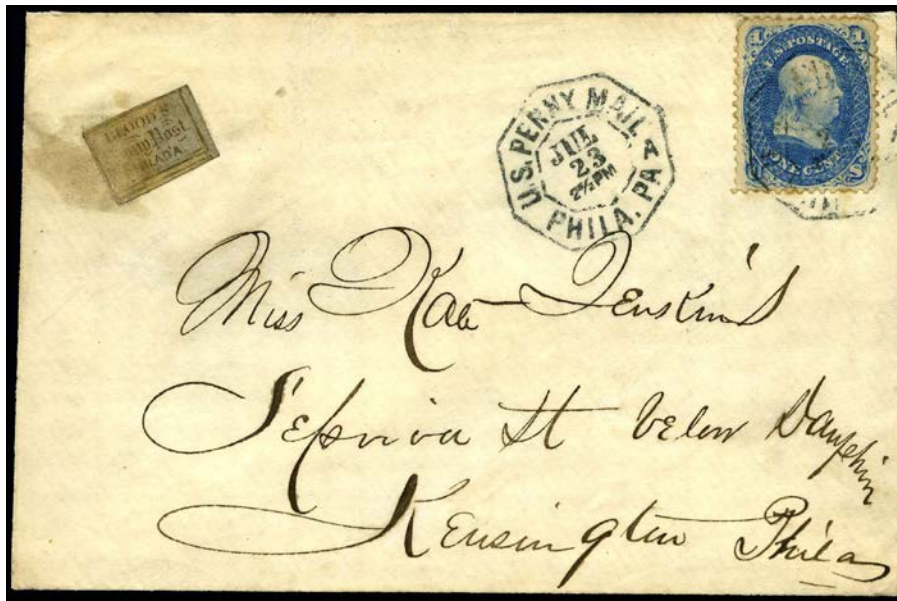 BLOOD'S
Penny Post
PHILAD'A
U.S. PENNY MAIL
JUL
23
2½PM
PHILA. PA
1 1
U.S. POSTAGE
ONE CENT
U S
Miss Kate Jenskin's
Sepviva St below Dauphin
Kensington Phila